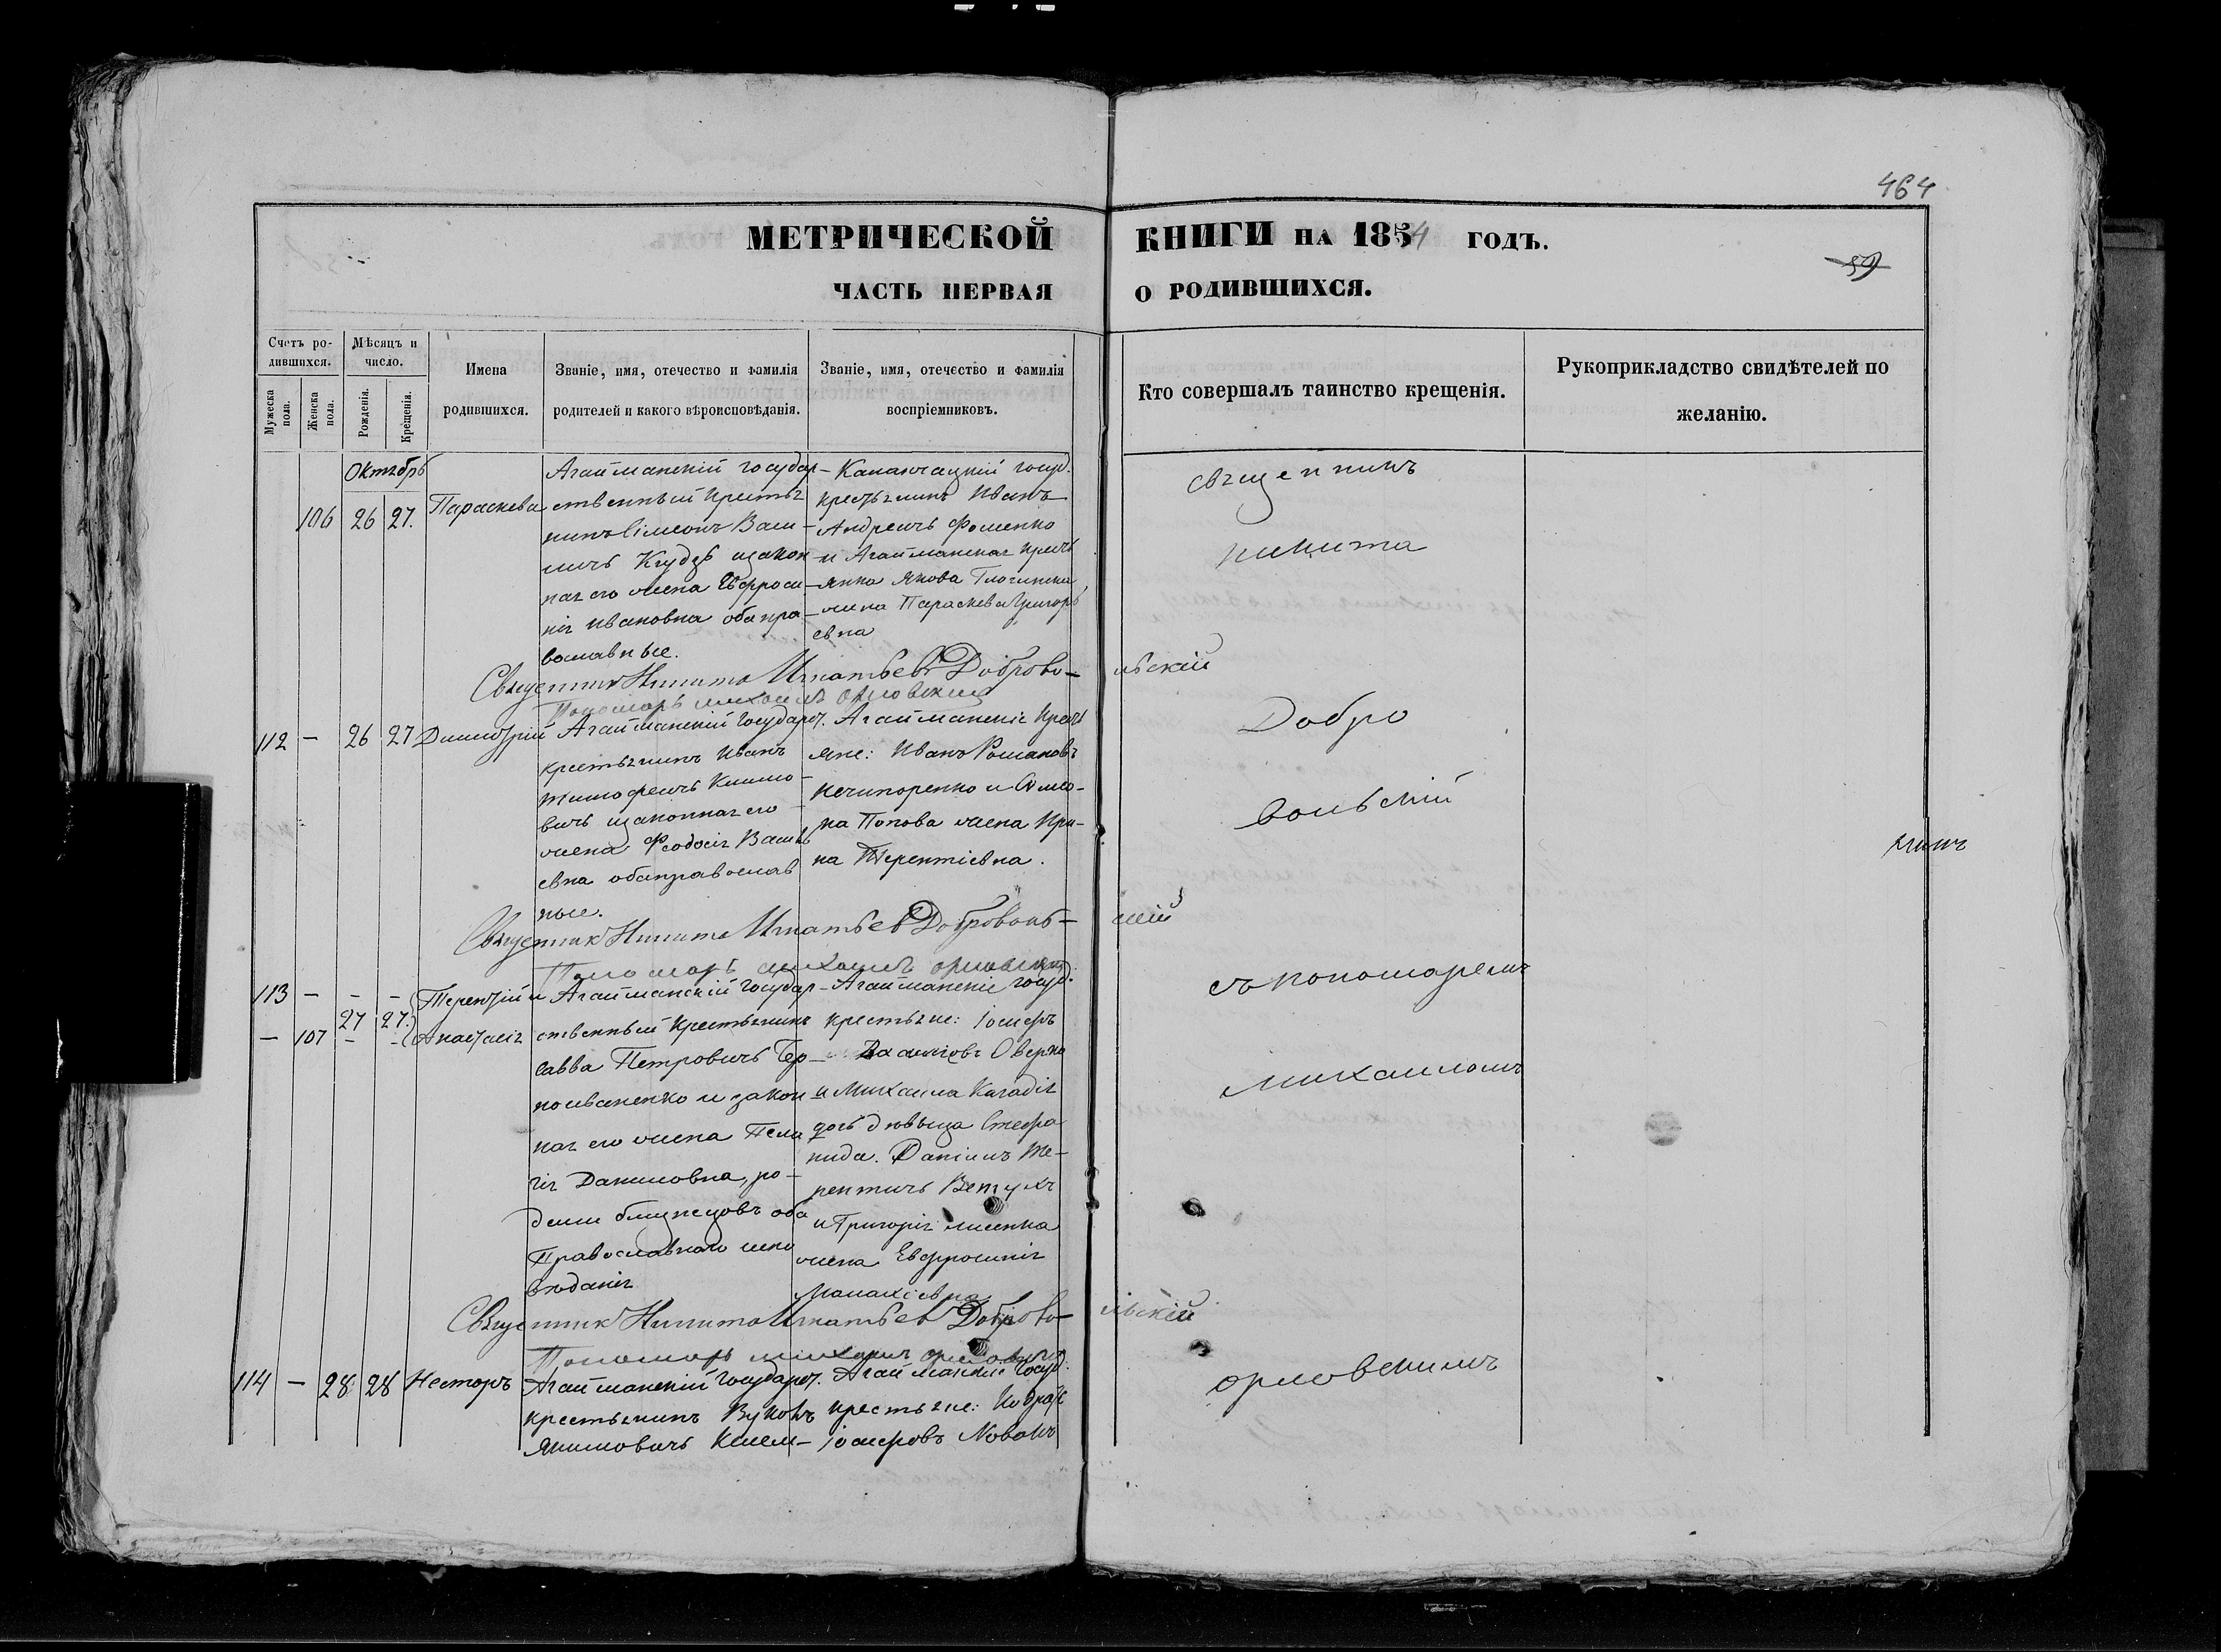 464
МЕТРИЧЕСКОЙ КНИГИ НА 1854 ГОДЪ.
59
ЧАСТЬ ПЕРВАЯ О РОДИВШИХСЯ.
Счетъ ро-
дившихся.
Мужеска пола.
Женска пола.
Мѣсяцъ и
число.
Рожденія.
Крещенія.
Имена
родившихся.
Званіе, имя, отечество и фамилія
родителей и какого вѣроисповѣданія.
Званіе, имя, отечество и фамилія
воспріемниковъ.
Кто совершалъ таинство крещенія.
Рукоприкладство свидѣтелей по
желанію.
Октябрь
106 26 27. Параскева
Агайманскій государ-
ственный крестья
нинъ Сімеонъ Васи-
личъ и закон
ная его жена Евфроси-
нія Ивановна оба пра-
вославные.
Каланчацкій госуд.
крестьянинъ Иванъ
Андреичъ Фоменко
и Агайманская кресть
янка Якова
жена Параскева Григорь
евна
Священник Никита Игнатьев Доброво-льскій
Пономарь Михаилъ Орловскій
112 - 26 27 Димитрій
Агайманскій Государст.
крестьянинъ Иванъ
Тимофеичъ Климо-
вичъ и законная его
жена Феодосія Василь
евна оба православ
ные.
Агайманскіе крестъ
яне: Иванъ Романовъ
Нечипоренко и Симо-
на Попова жена Ири-
на Терентіевна.
Священник Никита Игнатьев Добровольскій
Пономарь Михаилъ Орловскій
113 - - - Терентій и
27 27.
- 107 - - Анастасія
Агайманскій Государ-
ственный крестьянинъ
Савва Петровичъ
и закон
ная его жена Пела
гія Даниловна, ро-
дили близнецовъ оба
Православнаго испо
вѣданія
Агайманскіе госуд.
крестьяне: Іосифъ
и Михаила
дочь дѣвица Стефа
нида. Даніилъ Те-
рентичъ Ветухъ
и Григорія
жена Евфросинія
Малахіевна
Священник Никита Игнатьев Доброво-льскій
Пономарь Михаилъ Орловскій
114 - 28 28 Несторъ
Агайманскій Государст.
крестьянинъ Вуколъ
Якимовичъ
Агайманскіе Госуд.
крестьяне: Кодратъ
Іосифовъ
священникъ
никита
Добро
вольскій
съ пономаремъ
Михаиломъ
орловскимъ